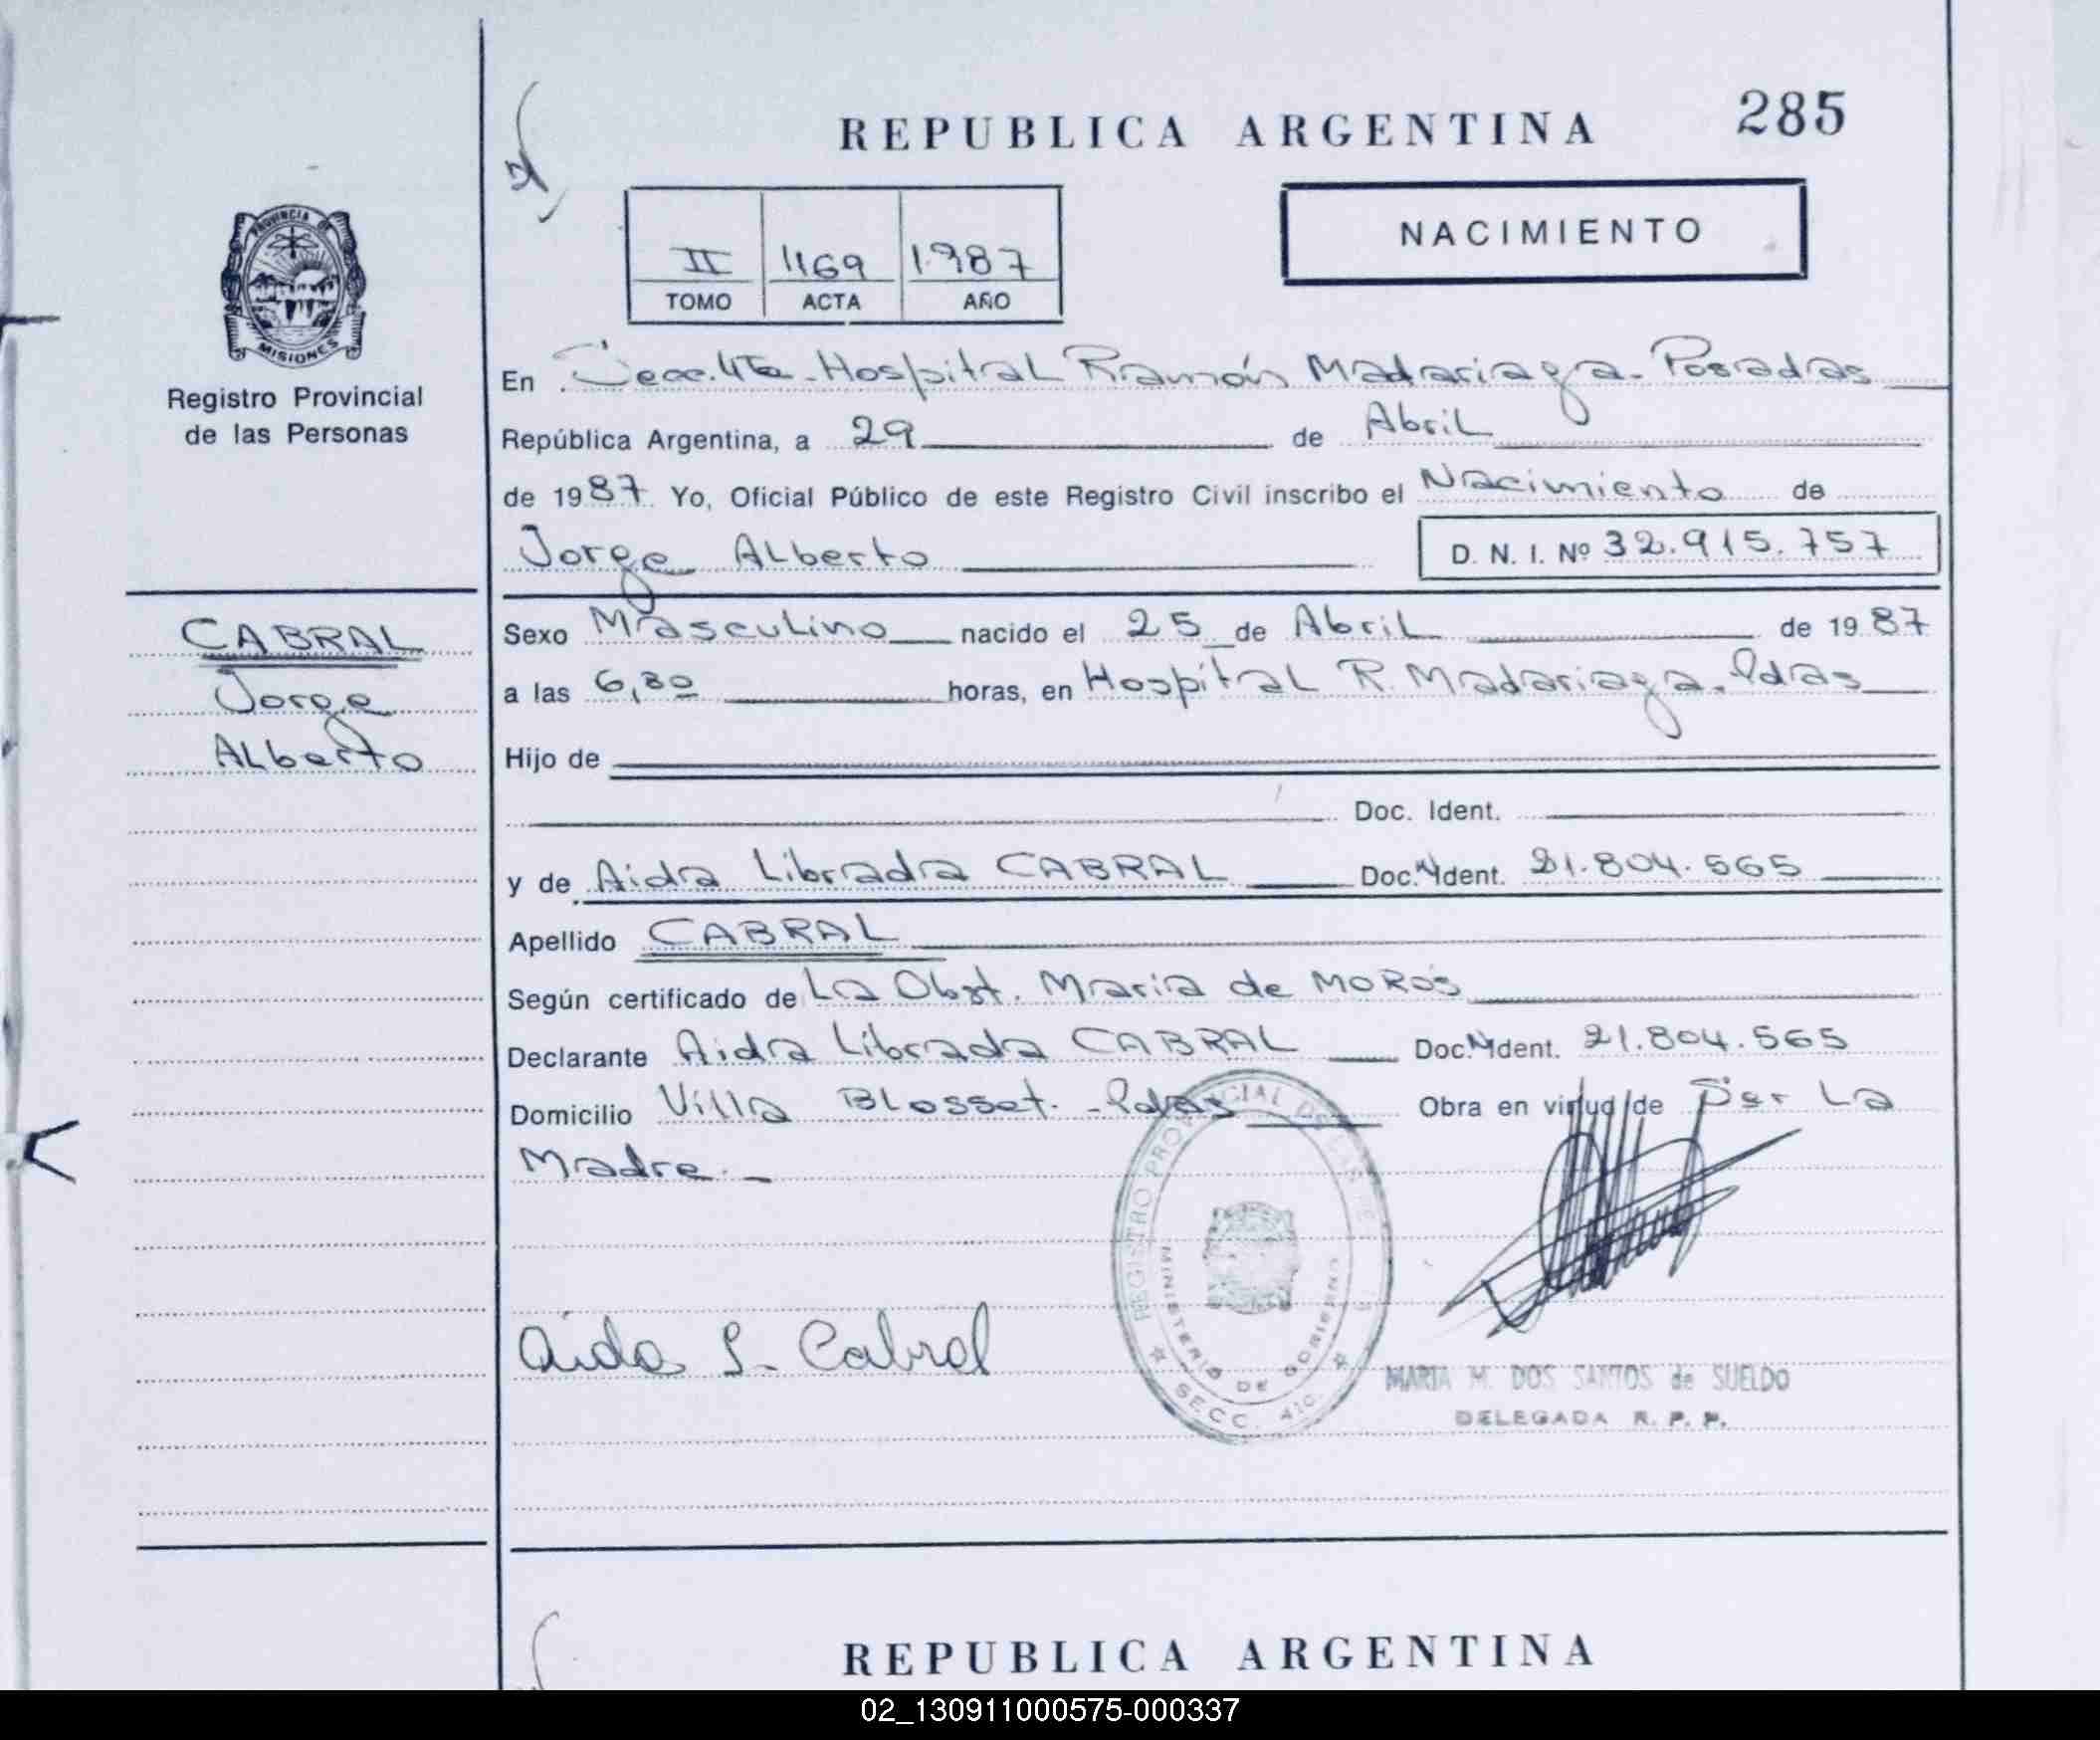 REPUBLICA ARGENTINA
285
II 1169 1.987
TOMO ACTA AÑO
NACIMIENTO
PROVINCIA DE
MISIONES
Registro Provincial
de las Personas
CABRAL
Jorge
ALberto
En Secc. 4ta - HospitaL Ramón Madariaga - Posadas
República Argentina, a 29 de AbriL
de 1987. Yo, Oficial Público de este Registro Civil inscribo el Nacimiento de
Jorge ALberto D. N. I. Nº 32.915.757
Sexo MascuLino nacido el 25 de AbriL de 1987
a las 6,30 horas, en HospitaL R. Madariaga. Pdas
Hijo de
Doc. Ident.
y de Aida Librada CABRAL Doc. N Ident. 21.804.565
Apellido CABRAL
Según certificado de La Obst. Maria de MOROS
Declarante Aida Librada CABRAL Doc. N Ident. 21.804.565
Domicilio Villa BLosset. - Pdas Obra en virtud de Ser La
Madre. -
REGISTRO PROVINCIAL DE LAS
MINISTERIO DE GOBIERNO
SECC.
Aida L. Cabral
MARIA M. DOS SANTOS de SUELDO
DELEGADA R. P. P.
REPUBLICA ARGENTINA
02_130911000575-000337